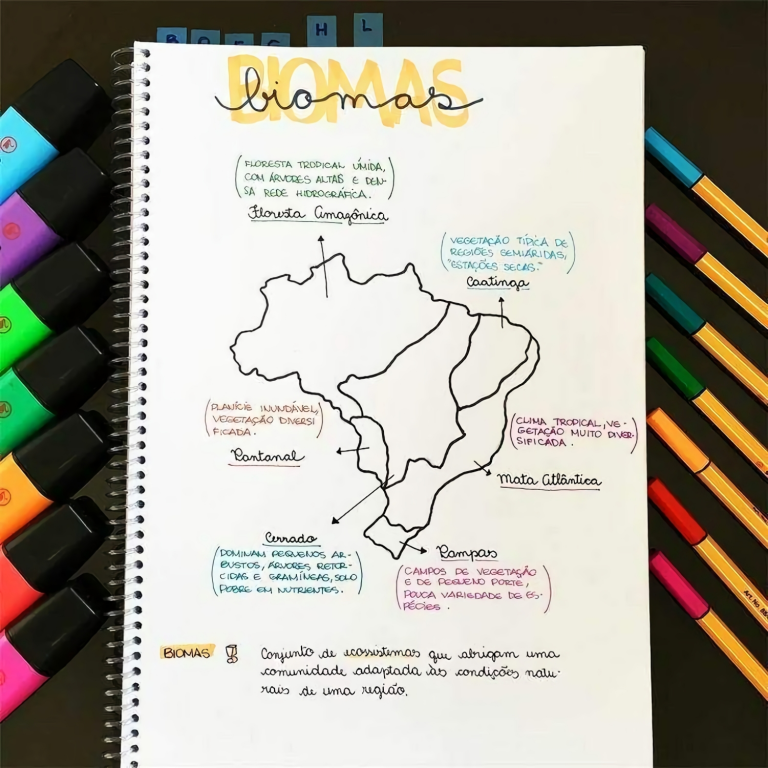 B O E G H L
BIOMAS
biomas
(FLORESTA TROPICAL ÚMIDA,
COM ÁRVORES ALTAS E DEN-
SA REDE HIDROGRÁFICA.)
Floresta Amazônica
(VEGETAÇÃO TÍPICA DE
REGIÕES SEMIÁRIDAS,
"ESTAÇÕES SECAS.")
Caatinga
(PLANÍCIE INUNDÁVEL,
VEGETAÇÃO DIVERSI
FICADA.)
Pantanal
(CLIMA TROPICAL, VE-
GETAÇÃO MUITO DIVER-
SIFICADA.)
Mata Atlântica
Cerrado
(DOMINAM PEQUENOS AR-
BUSTOS, ÁRVORES RETOR-
CIDAS E GRAMÍNEAS, SOLO
POBRE EM NUTRIENTES.)
Pampas
(CAMPOS DE VEGETAÇÃO
E DE PEQUENO PORTE,
POUCA VARIEDADE DE ES-
PÉCIES.)
BIOMAS !
Conjunto de ecossistemas que abrigam uma
comunidade adaptada às condições natu-
rais de uma região.
Art. No.